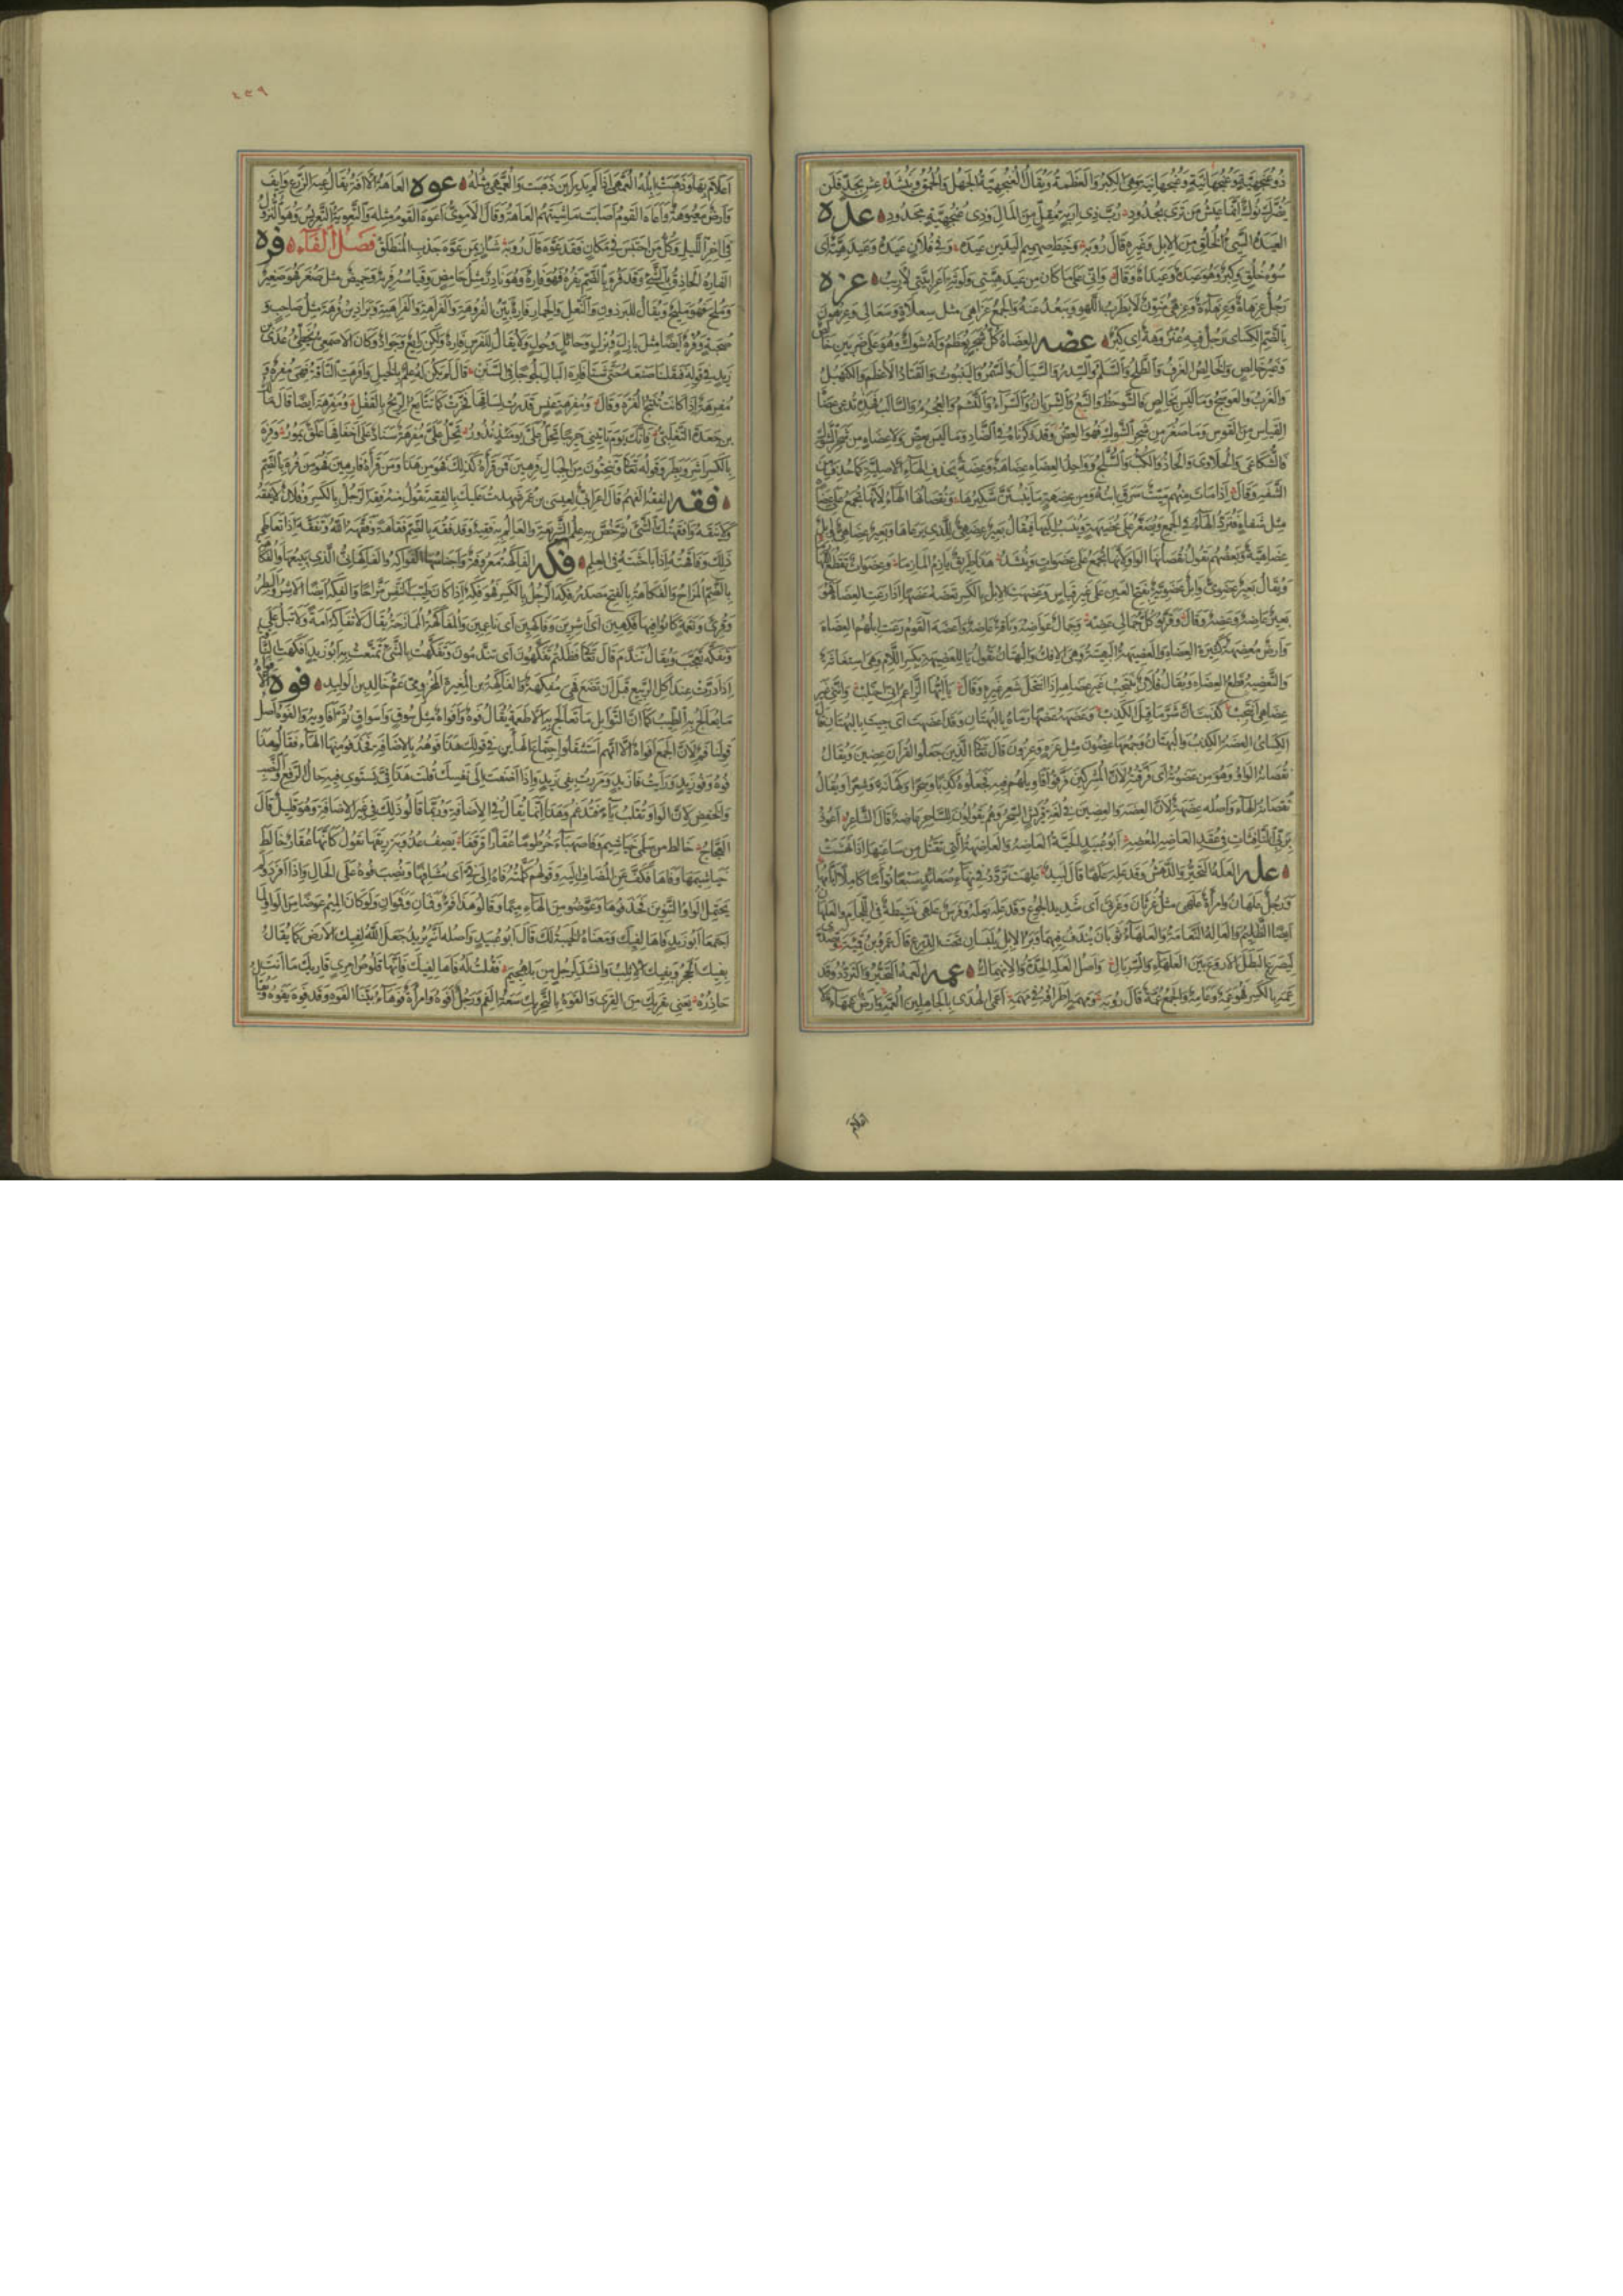 ذو عنجهية وعنجهانية وهى الكبر والعظمة ويقال العنجهية الجهل والحمق وينشد عش بجد فلن
يضرك نوك انما عيش من ترى بجدود رب ذى اربة مقل من المال وذى عنجهية مجدود عده
العيده السيئ الخلق من الابل وغيره قال رؤبة وخبط صهميم اليدين عيده وفى فلان عيدة وعيدهية اى
سوء خلق وكبر وهو عيده وعيداه وقال وانى على ما كان من عيدهيتى ولوثة اعرابيتى لاريب عزه
رجل عزهاة وعزهاءة وعزهى منون لا يطرب للهو ويبعد عنه والجمع عزاهى مثل سعلاة وسعالى وعزهون
بالضم الكسائى رجل فيه عنزهوة اى كبر عضه العضاه كل شجر يعظم وله شوك وهو على ضربين خالص
وغير خالص والخالص الغرف والطلح والسلم والسدر والسيال والسمر والينبوت والقتاد الاعظم والكنهبل
والغرب والعوسج وما ليس بخالص فالشوحط والنبع والشريان والسراء والنشم والعجرم والتالب فهذه تدعى عضاه
القياس من القوس وما صغر من شجر الشوك فهو العض وقد ذكرناه فى الضاد وما ليس بعض ولا عضاه من شجر الشوك
فالشكاعى والحلاوى والحاذ والكب والسلج وواحد العضاه عضاهة وعضهة وعضة بحذف الهاء الاصلية كما حذفت من
الشفة وقال اذا مات منهم ميت سرق ابنه ومن عضة ما ينبتن شكيرها ونقصانها الهاء لانها تجمع على عضاه
مثل شفاه فترد الهاء فى الجمع وتصغر على عضيهة وينسب اليها فيقال بعير عضهى للذى يرعاها وبعير عضاهى وابل
عضاهية وبعضهم يقول نقصانها الواو لانها تجمع على عضوات وينشد هذا طريق يازم المازما وعضوات تقطع اللهازما
ويقال بعير عضوى وابل عضوية بفتح العين على غير قياس وعضهت الابل بالكسر تعضه عضها اذا رعت العضاه فهو
بعير عاضه وعضه وقال وقربوا كل جمالى عضه وجمال عواضه وناقة عاضهة واعضه القوم رعت ابلهم العضاه
وارض معضهة كثيرة العضاه والعضيهة البهيتة وهى الافك والبهتان تقول يا للعضيهة بكسر اللام وهى استغاثة
والتعضيه قطع العضاه ويقال فلان ينتجب غير عضاهه اذا انتحل شعر غيره وقال يا ايها الزاعم انى اجتلب واننى غير
عضاهى انتجب كذبت ان شر ما قيل الكذب وعضهه عضها رماه بالبهتان وقد اعضهت اى جئت بالبهتان قال
الكسائى العضه الكذب والبهتان وجمعها عضون مثل عزة وعزون قال تعالى الذين جعلوا القران عضين ويقال
نقصانه الواو وهو من عضوته اى فرقته لان المشركين فرقوا اقاويلهم فيه فجعلوه كذبا وسحرا وكهانة وشعرا ويقال
نقصانه الهاء واصله عضهة لان العضه والعضين فى لغة قريش السحر وهم يقولون للساحر عاضه قال الشاعر اعوذ
بربى من النافثات فى عقد العاضه المعضه ابو عبيد الحية العاضه والعاضهة التى تقتل من ساعتها اذا نهشت
عله العله التحير والدهش وقد عله علها قال لبيد علهت تردد فى نهاء صعائد سبعا تؤاما كاملا ايامها
ورجل علهان وامرأة علهى مثل غرثان وغرثى اى شديد الجوع وقد عله يعله وفرس علهى نشيطة فى اللجام والعلهان
ايضا الظليم والعاله النعامة والعلهاء ثوبان يندف فيهما وبر الابل يلبسان تحت الدرع قال عمرو بن قميئة وتصدى
ليصرع البطل الاروع بين العلهاء والسربال واصل العله الحدة والانهماك عمه العمه التحير والتردد وقد
عمه بالكسر فهو عمه وعامه والجمع عمه قال رؤبة ومهمه اطرافه فى مهمه اعمى الهدى بالجاهلين العمه وارض عمهاء لا
اعلام
٤٣٩
اعلام بها وذهبت ابله العمهى اذا لم يدر اين ذهبت والعميهى مثله عوه العاهة الافة يقال عيه الزرع وايف
وارض معيوهة واعاه القوم اصابت ماشيتهم العاهة وقال الاموى اعوه القوم مثله والتعويه التعريس وهو النزول
فى اخر الليل وكل من احتبس فى مكان فقد عوه قال رؤبة شأز بمن عوه جذب المنطلق فصل الفاء فره
الفاره الحاذق بالشئ وقد فره بالضم يفره فهو فاره وهو نادر مثل حامض وقياسه فريه وحميض مثل صغر فهو صغير
وملح فهو مليح ويقال للبرذون والبغل والحمار فاره بين الفروهة والفراهة والفراهية وبراذين فرهة مثل صاحب و
صحبة وفره ايضا مثل بازل وبزل وحائل وحول ولا يقال للفرس فاره ولكن رائع وجواد وكان الاصمعى يخطئ عدى بن
زيد فى قوله فنقلنا صنعه حتى شتا فاره البال لجوجا فى السنن قال لم يكن له علم بالخيل وافرهت الناقة فهى مفره و
مفرهة اذا كانت تنتج الفره وقال ومفرهة عنس قدرت لساقها فخرت كما تتابع الريح بالقفل ومفرهة ايضا قال مالك
بن جعدة التغلبى فانك يوم تأتينى حريبا تحل على يومئذ نذور تحل على مفرهة سناد على اخفافها علق يمور وفره
بالكسر اشر وبطر وقوله تعالى وتنحتون من الجبال فرهين فمن قرأه كذلك فهو من هذا ومن قرأه فارهين فهو من فره بالضم
فقه الفقه الفهم قال اعرابى لعيسى بن عمر شهدت عليك بالفقه تقول منه فقه الرجل بالكسر وفلان لا يفقه
ولا ينقه وافقهتك الشئ ثم خص به علم الشريعة والعالم به فقيه وقد فقه بالضم فقاهة وفقهه الله وتفقه اذا تعاطى
ذلك وفاقهته اذا باحثته فى العلم فكه الفاكهة معروفة واجناسها الفواكه والفاكهانى الذى يبيعها والفكاهة
بالضم المزاح والفكاهة بالفتح مصدر فكه الرجل بالكسر فهو فكه اذا كان طيب النفس مزاحا والفكه ايضا الاشر والبطر
وقرئ ونعمة كانوا فيها فكهين اى اشرين وفاكهين اى ناعمين والمفاكهة الممازحة يقال لا تفاكه امة ولا تبل على
وتفكه تعجب ويقال تندم قال تعالى فظلتم تفكهون اى تندمون وتفكهت بالشئ تمتعت به ابو زيد افكهت الناقة
اذا درت عند اكل الربيع قبل ان تضع فهى مفكهة والفاكه بن المغيرة المخزومى عم خالد بن الوليد فوه الافواه
ما يعالج به الطيب كما ان التوابل ما تعالج به الاطعمة يقال فوه وافواه مثل سوق واسواق ثم افاويه والفوه اصل
قولنا فم لان الجمع افواه الا انهم استثقلوا اجتماع الهاءين فى قولك هذا فوهه بالاضافة فحذفوا منها الهاء فقالوا هذا
فوه وفو زيد ورأيت فا زيد ومررت بفى زيد واذا اضفت الى نفسك قلت هذا فى يستوى فيه حال الرفع والنصب
والخفض لان الواو تقلب ياء فتدغم وهذا انما يقال فى الاضافة وربما قالوا ذلك فى غير الاضافة وهو قليل قال
العجاج خالط من سلمى خياشيم وفا صهباء خرطوما عقارا قرقفا يصف عذوبة ريقها يقول كانها عقار خالط
خياشيمها وفاها فكف عن المضاف اليه وقولهم كلمته فاه الى فى اى مشافها ونصب فوه على الحال واذا افردوا لم
يحتمل الواو التنوين فحذفوها وعوضوا من الهاء ميما وقالوا هذا فم وفمان وفموان ولو كان الميم عوضا من الواو لما
اجتمعا ابو زيد فاها لفيك ومعناه الخيبة لك قال ابو عبيد واصله انه يريد جعل الله لفيك الارض كما يقال
بفيك الحجر وبفيك الاثلب وانشد لرجل من بلهجيم فقلت له فاها لفيك فانها قلوص امرئ قاريك ما انت
حاذره يعنى يقريك من القرى والفوه بالتحريك سعة الفم ورجل افوه وامرأة فوهاء بينا الفوه وقد فوه يفوه